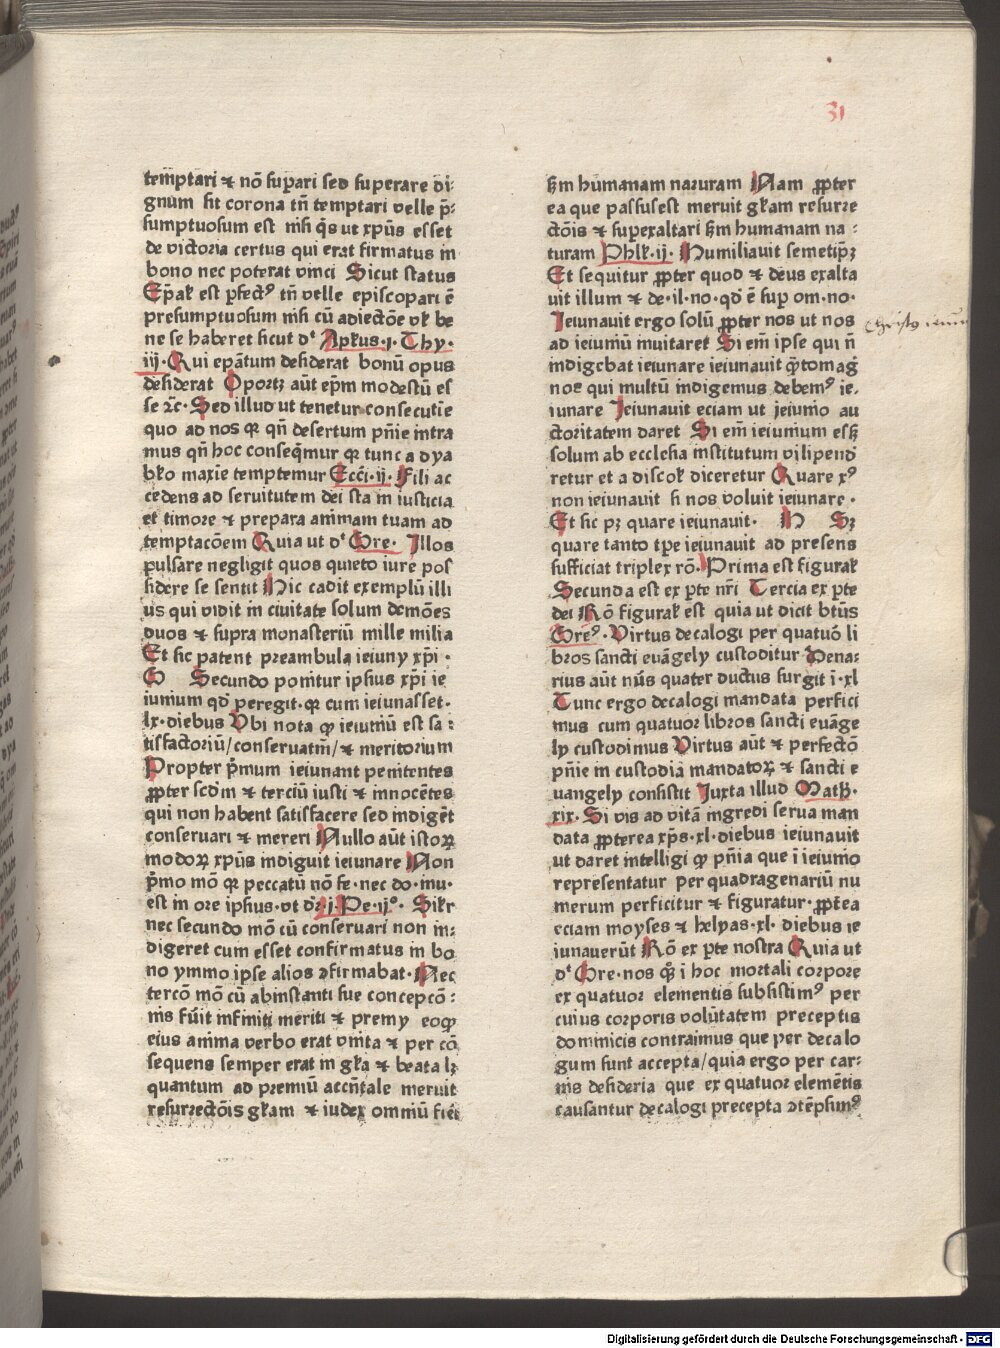 31
temp̄tari ⁊ nō suꝑari sed superare di⸗
gnum sit corona tn̄ temptari velle p̄⸗
sumptuosum est nisi q̄s ut xp̄us esset
de victoria certus qui erat firmatus in
bono nec poterat vinci Sicut status
Ep̄al' est ꝑfectꝰ tn̄ velle episcopari ē
presumptuosum nisi cū adiectōe vl' be
ne se haberet sicut dt Apl'us .j. Thy.
iij. Qui epāntum desiderat bonū opus
desiderat Oportꝫ aūt ep̄m modestū es
se ⁊c. Sed illud ut tenetur consecutie
quo ad nos qr qn̄ desertum pn̄ie intra
mus qn̄ hoc conseq̄mur qr tunc a dya
bl'o maxīe temptemur Ecc̄i .ij. Fili ac
cedens ad servitutem dei sta in iusticia
et timore ⁊ prepara animam tuam ad
temptacōem Quia ut dt Gre. Illos
pulsare negligit quos quieto iure pos
sidere se sentit Hic cadit exemplū illi
us qui vidit in civitate solum demōes
duos ⁊ supra monasteriū mille milia
Et sic patent preambula ieiuny xp̄i .
G Secundo ponitur ipsius xp̄i ie
iunium qd̄ peregit. qr cum ieiunasset.
lx. diebus Vbi nota ꝙ ieiuniū est sa⸗
tisfactoriū/conservatiū/⁊ meritorium
Propter p̄mum ieiunant penitentes
ꝓpter scd̄m ⁊ terciū iusti ⁊ innocētes
qui non habent satisfacere sed indigēt
conservari ⁊ mereri Nullo aūt istoꝝ
modoꝝ xp̄us indiguit ieiunare Non
p̄mo mō qr peccatū nō fe. nec do. mu.
est in ore ipsius. vt dr .j. Pe. ijº. Sil'r
nec secundo mō cū conservari non in⸗
digeret cum esset confirmatus in bo
no ymmo ipse alios ꝯfirmabat. Nec
tercō mō cū ab instanti sue concepcō⸗
nis fūit infiniti meriti ⁊ premy eoꝙ
eius anima verbo erat vnita ⁊ per cō
sequens semper erat in gl'a ⁊ beata lꝫ
quantum ad premiū accn̄tale meruit
resurrectōis gl'am ⁊ iudex omniū fieri
ẜm humanam naturam Nam ꝓpter
ea que passus est meruit gl'am resurre
ctōis ⁊ suꝑexaltari ẜm humanam na⸗
turam Phl'. ij. Humiliavit semetip̄ꝫ
Et sequitur ꝓpter quod ⁊ deus exalta
vit illum ⁊ de. il. no. qd̄ ē suꝑ om. no.
Ieiunavit ergo solū ꝓpter nos ut nos
ad ieiuniū invitaret Si em̄ ipse qui n̄
indigebat ieiunare ieiunavit q̄tomaḡ
nos qui multū indigemus debemꝰ ie⸗
iunare Ieiunavit eciam ut ieiunio au
ctoritatem daret Si em̄ ieiunium essꝫ
solum ab ecclesia institutum vilipend̄
retur et a discol' diceretur Quare xꝰ
non ieiunavit si nos voluit ieiunare .
Et sic pꝫ quare ieiunavit. H Sꝫ
quare tanto tp̄e ieiunavit ad presens
sufficiat triplex rō. Prima est figural'
Secunda est ex ꝑte nr̄i Tercia ex ꝑte
dei Rō figural' est quia ut dicit bt̄us
Greꝰ. Virtus decalogi per quatuō li
bros sancti evāgely custoditur Dena⸗
rius aūt nūs quater ductus surgit ī. xl
Tunc ergo decalogi mandata perfici
mus cum quatuor libros sancti evāge
ly custodimus Virtus aūt ⁊ perfectō
pn̄ie in custodia mandatoꝝ ⁊ sancti e
vangely consistit Iuxta illud Math.
xix. Si vis ad vitā ingredi serva man
data ꝓpterea xp̄s. xl. diebus ieiunavit
ut daret intelligi ꝙ pn̄ia que ī ieiunio
representatur per quadragenariū nu
merum perficitur ⁊ figuratur. ꝓpt̄ea
eciam moyses ⁊ helyas. xl. diebus ie
iunaverūt Rō ex ꝑte nostra Quia ut
dt Gre. nos qz̄ ī hoc mortali corpore
ex quatuor elementis subsistimꝰ per
cuius corporis volūtatem preceptis
dominicis contraimus que per decalo
gum sunt accepta/quia ergo per car⸗
nis desideria que ex quatuor elemētis
causantur decalogi precepta ꝯtēpsimꝰ
Digitalisierung gefördert durch die Deutsche Forschungsgemeinschaft - DFG